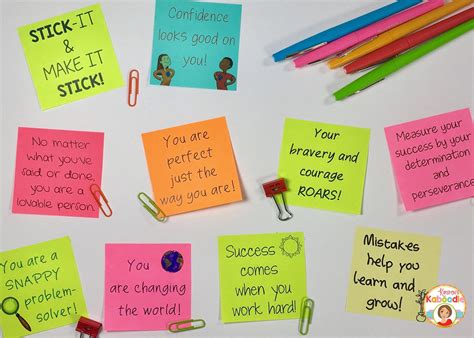 STICK-IT
&
MAKE IT
STICK!
Confidence
looks good on
you!
No matter
what you've
said or done,
you are a
lovable person.
You are
perfect
just the
way you are!
Your
bravery and
courage
ROARS!
Measure your
success by your
determination
and
perseverance.
You are a
SNAPPY
problem-
solver!
You
are changing
the world!
Success
comes
when you
work hard!
Mistakes
help you
learn and
grow!
Kaboodle